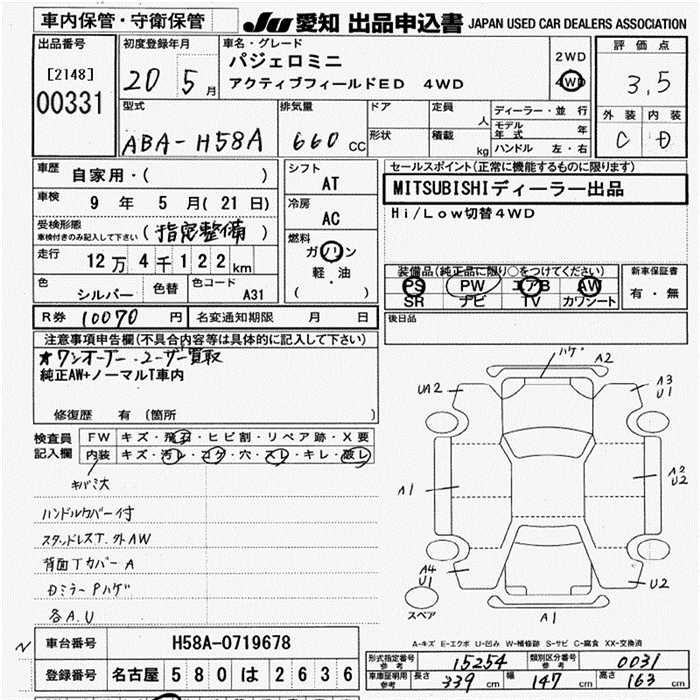 車内保管・守衛保管
JU 愛知 出品申込書 JAPAN USED CAR DEALERS ASSOCIATION
出品番号
[2148]
00331
初度登録年月
20 5月
車名・グレード
パジェロミニ
アクティブフィールドED 4WD
2WD
4WD
評価点
3.5
外装 内装
C D
型式
ABA-H58A
排気量
660 CC
ドア
形状
定員
人
積載
kg
ディーラー・並行
モデル年式 年
ハンドル 左・右
車歴
自家用・( )
車検
9 年 5 月(21 日)
受検形態
車検付きのみ記入して下さい
(指定整備)
走行
12万4千122km
色
シルバー
色替
色コード
A31
シフト
AT
冷房
AC
燃料
ガソリン
軽・油
( )
セールスポイント(正常に機能するものに限ります)
MITSUBISHIディーラー出品
Hi/Low切替4WD
装備品(純正品に限り○をつけてください)
PS PW エアB AW
SR ナビ TV カワシート
新車保証書
有・無
後日品
R券 10070 円
名変通知期限 月 日
注意事項申告欄(不具合内容等は具体的に記入して下さい)
★ワンオーナー.ユーザー買取
純正AW+ノーマルT車内
修復歴 有(箇所 )
検査員記入欄
FW キズ・飛石・ヒビ割・リペア跡・X要
内装 キズ・汚レ・コゲ・穴・スレ・キレ・破レ
キバミ大
ハンドルカバー付
スタッドレスT.外AW
背面TカバーA
DミラーPハゲ
各A.U
ハゲ
A2
UA2
A3
U1
A1
A2
U2
A4
U1
U2
スペア
A1
A-キズ E-エクボ U-凹み W-補修跡 S-サビ C-腐食 XX-交換済
車台番号 H58A-0719678
登録番号 名古屋 580 は 2636
形式指定番号 参考 15254
類別区分番号 参考 0031
車庫証明用 参考 長さ 339 cm 幅 147 cm 高さ 163 cm